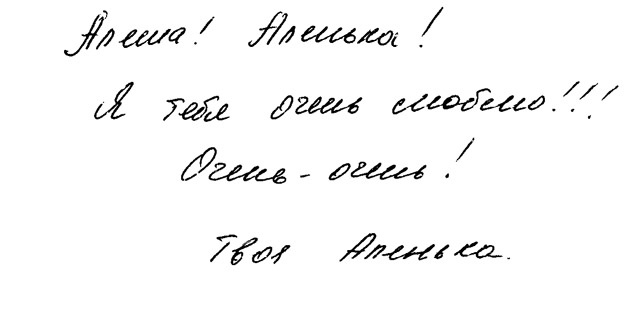 Алеша! Аленька!
Я тебя очень люблю!!!
Очень-очень!
Твоя Аленька.